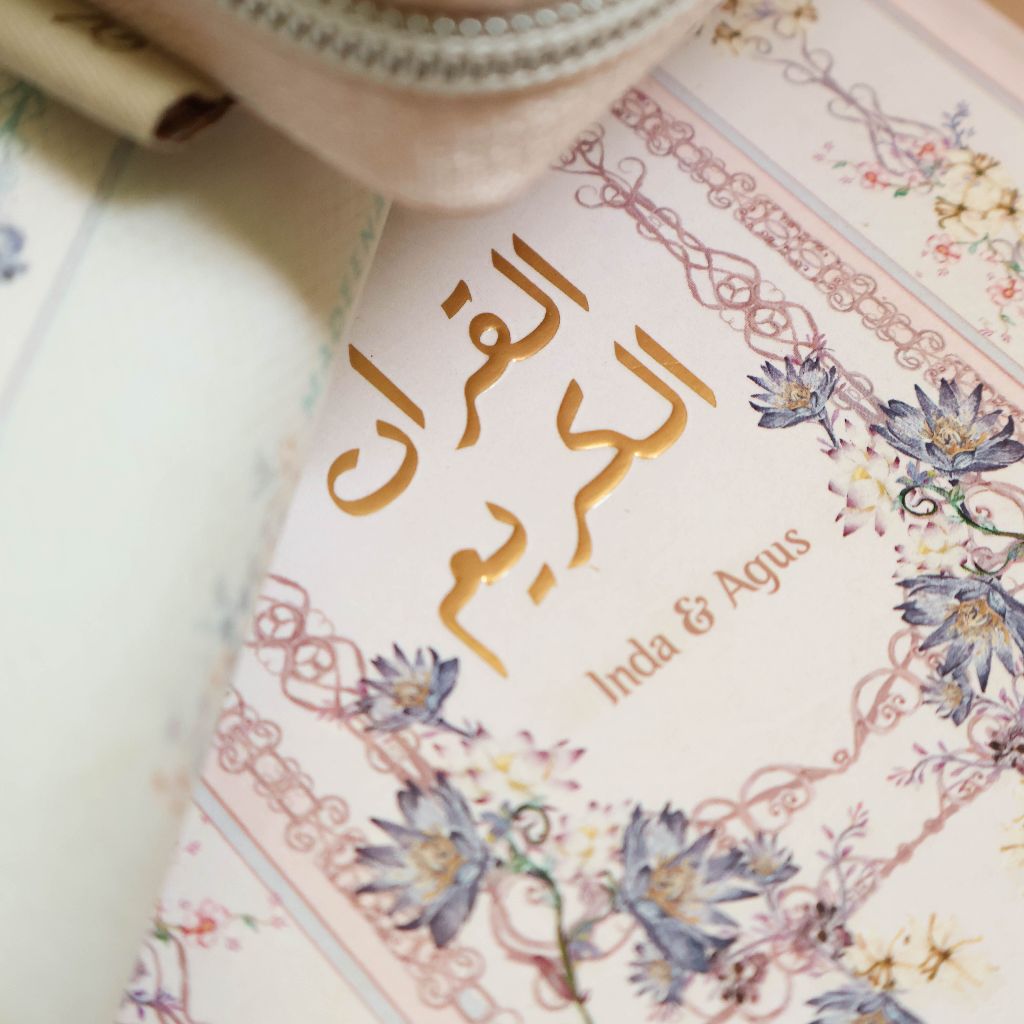 القران
الكريم
Inda & Agus